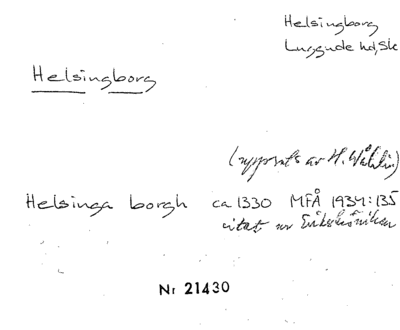 Helsingborg
Luggude hd, Sk
Helsingborg
(uppsats av H. Wåhlin)
Helsinga borgh ca 1330 MFÅ 1934:135
citat ur Erikskrönikan
Nr 21430